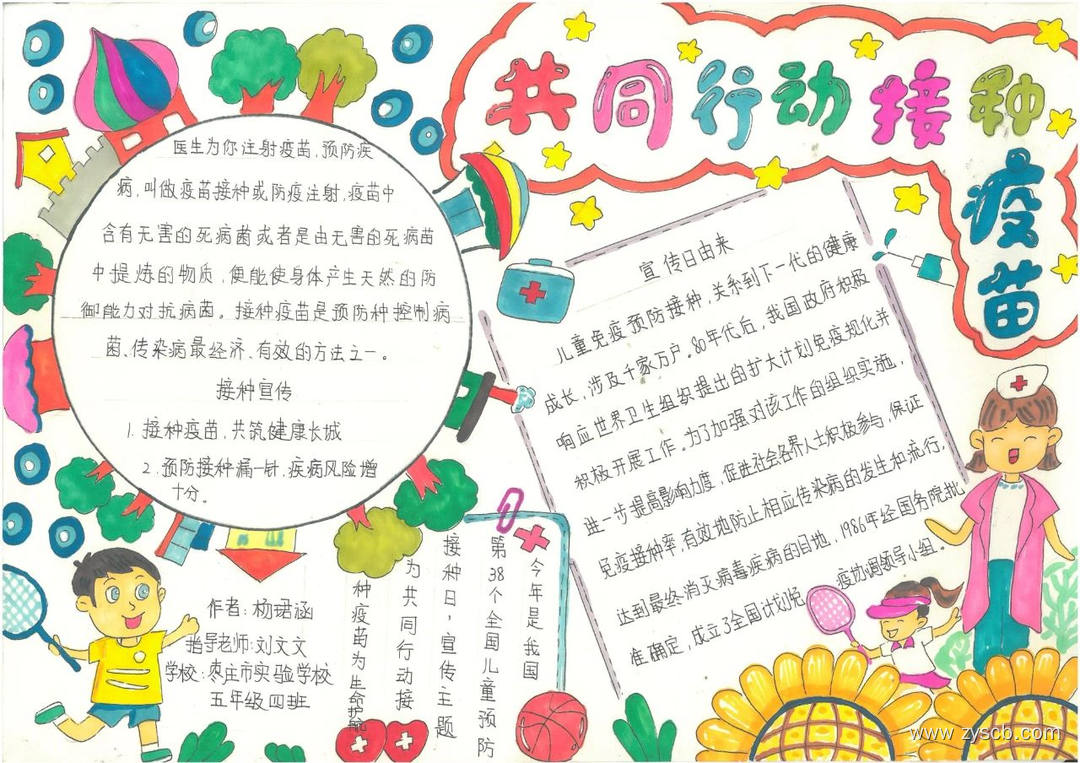 共同行动接种
疫苗
医生为你注射疫苗，预防疾
病，叫做疫苗接种或防疫注射，疫苗中
含有无害的死病菌或者是由无害的死病苗
中提炼的物质，便能使身体产生天然的防
御能力对抗病菌。接种疫苗是预防种控制病
菌、传染病最经济、有效的方法之一。
接种宣传
1. 接种疫苗，共筑健康长城
2. 预防接种漏一针，疾病风险增
十分。
宣传日由来
儿童免疫预防接种，关系到下一代的健康
成长，涉及千家万户。80年代后，我国政府积极
响应世界卫生组织提出的扩大计划免疫规化并
积极开展工作。为了加强对该工作的组织实施，
进一步提高影响力度，促进社会各界人士积极参与，保证
免疫接种率，有效地防止相应传染病的发生和流行，
达到最终消灭病毒疾病的目地，1986年经国务院批
准确定，成立了全国计划免疫协调领导小组。
今年是我国
第38个全国儿童预防
接种日，宣传主题
为共同行动接
种疫苗为生命护航
作者：杨珺涵
指导老师：刘文文
学校：枣庄市实验学校
五年级四班
www.zyscb.com